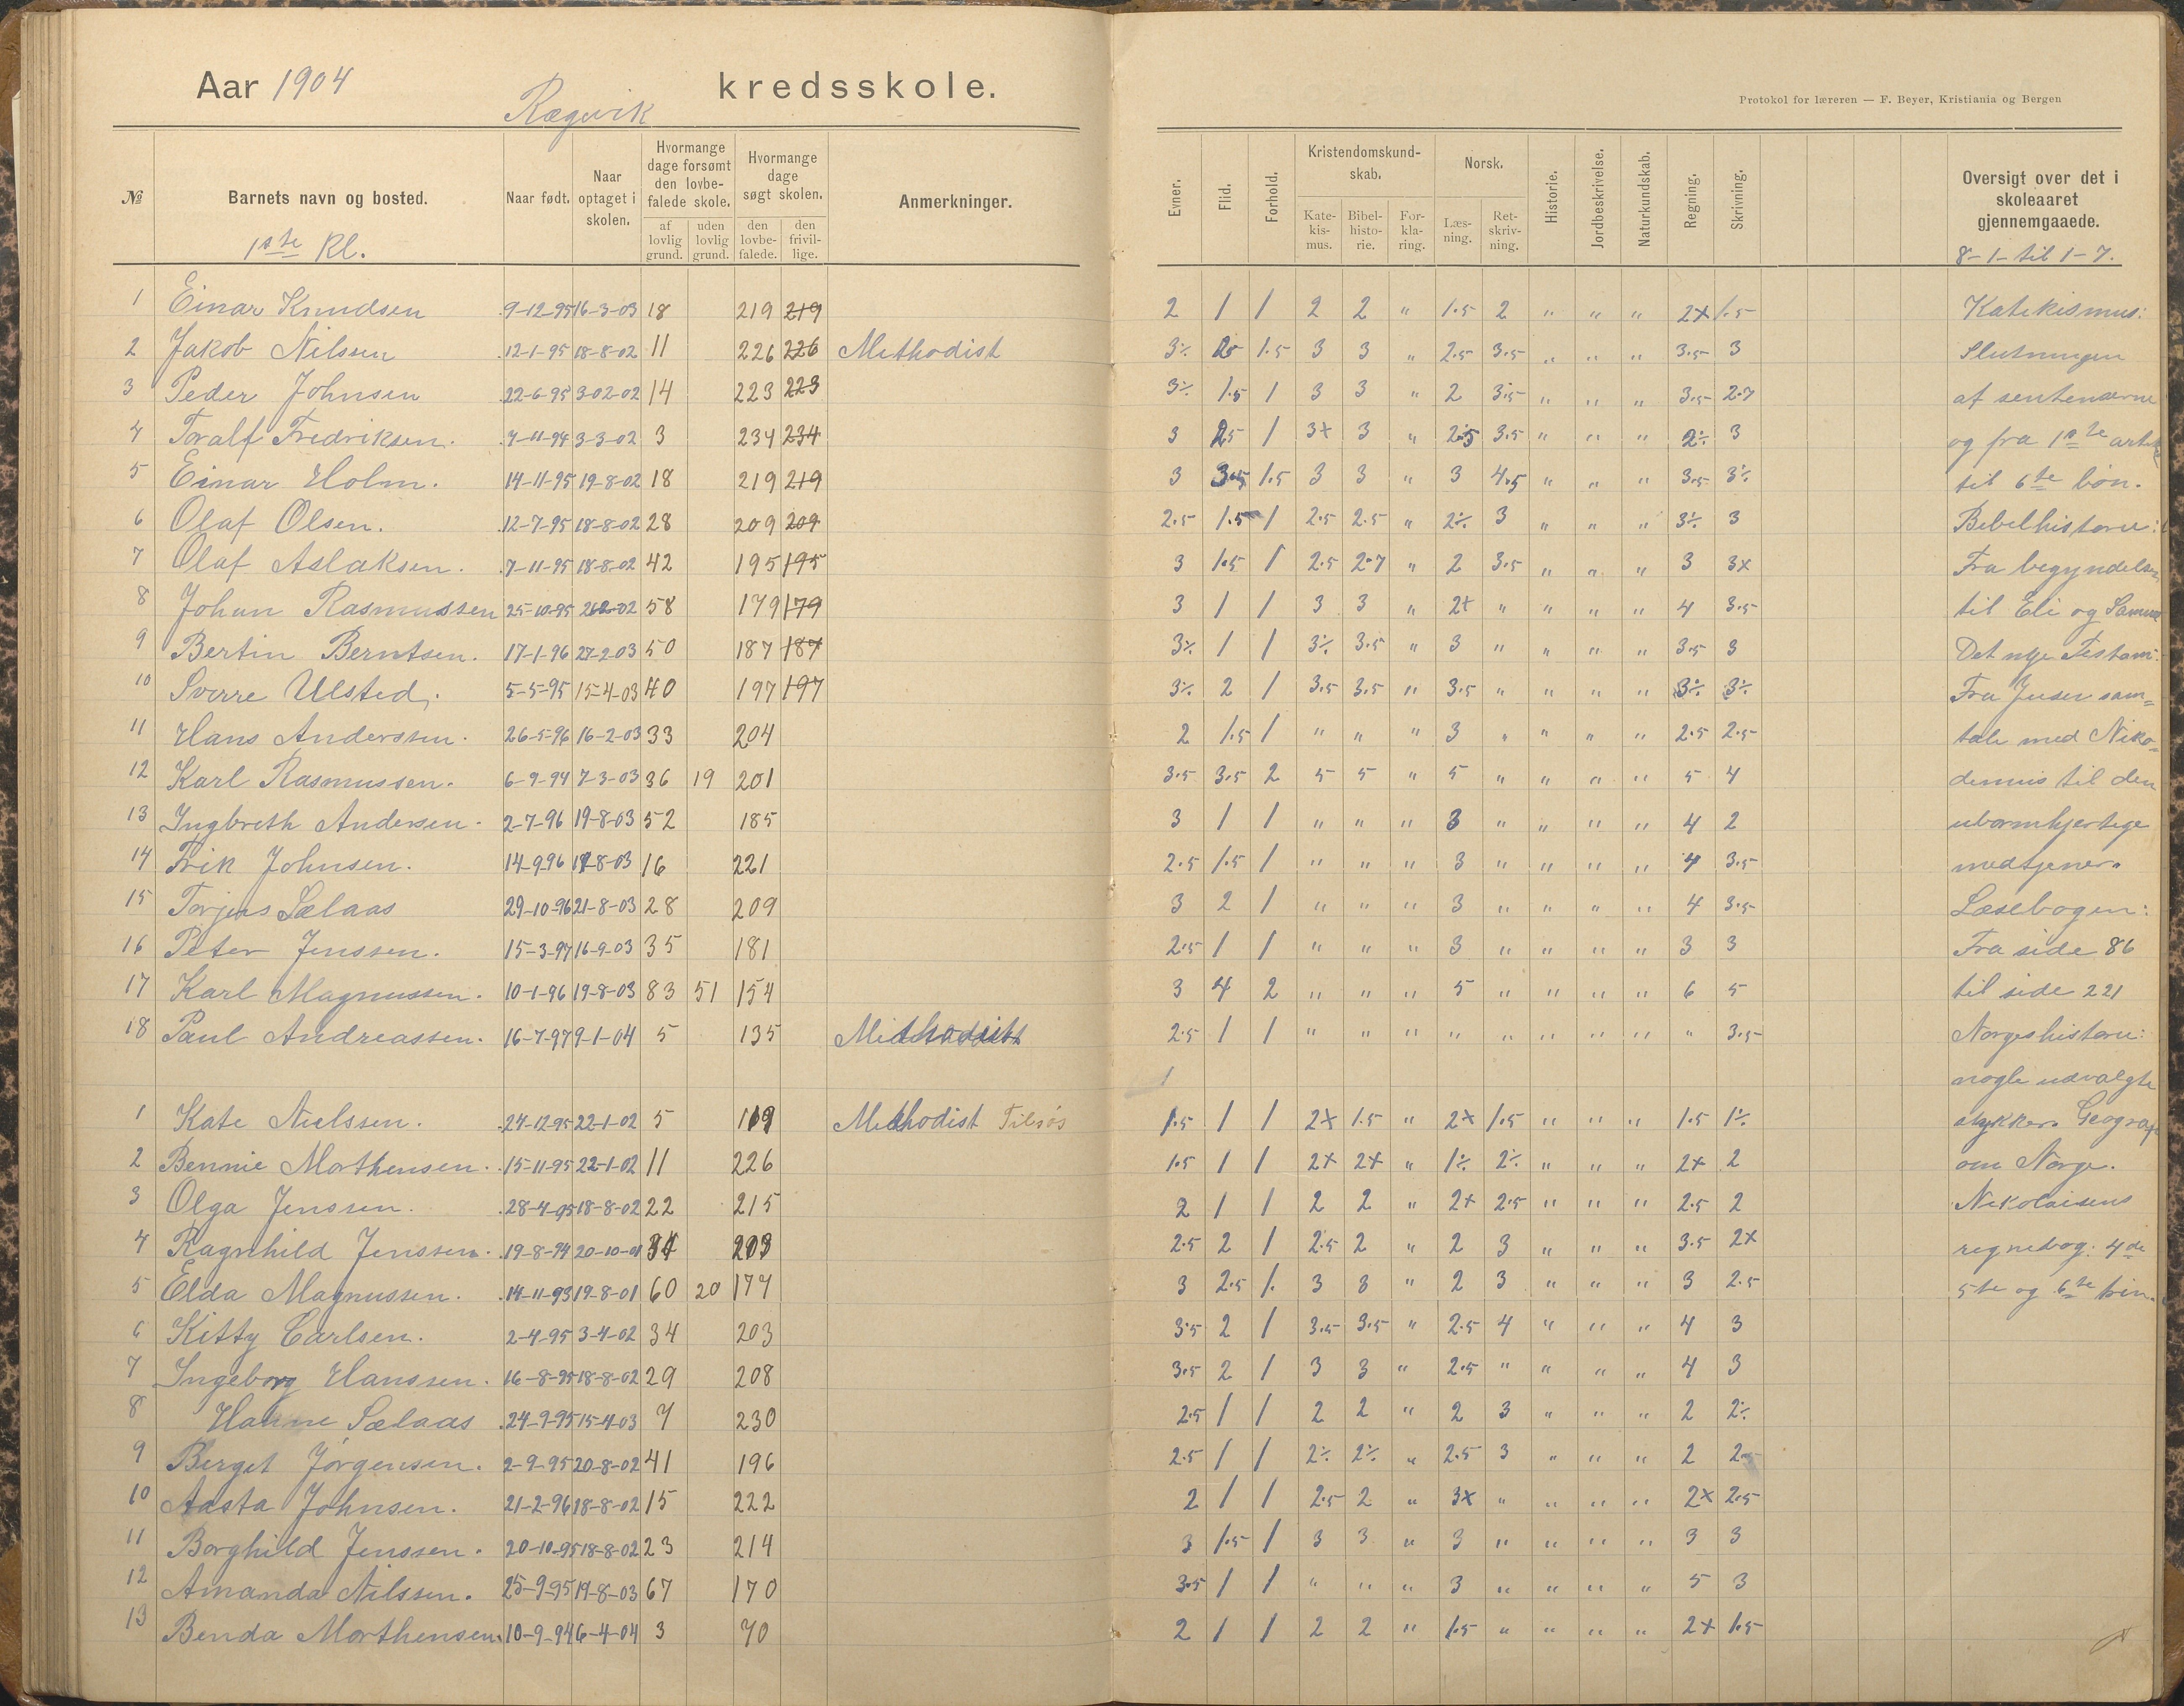 Aar 1904
Rægevik kredsskole.
Protokol for læreren — F. Beyer, Kristiania og Bergen
№ Barnets navn og bosted. Naar født. Naar optaget i skolen. Hvormange dage forsømt den lovbefalede skole. af lovlig grund. uden lovlig grund. Hvormange dage søgt skolen. den lovbefalede. den frivillige. Anmerkninger.
Evner. Flid. Forhold. Kristendomskundskab. Katekismus. Bibelhistorie. Forklaring. Norsk. Læsning. Retskrivning. Historie. Jordbeskrivelse. Naturkundskab. Regning. Skrivning. Oversigt over det i skoleaaret gjennemgaaede.
1ste Kl. 8-1- til 1-7.
1 Einar Knudsen 9-12-95 16-3-03 18 219 219 2 1 1 2 2 " 1.5 2 " " " 2+ 1.5 Katekismus:
2 Jakob Nilssen 12-1-95 18-8-02 11 226 226 Methodist 3÷ 1.5 3 3 " 2.5 3.5 " " " 3.5 3 Slutningen
3 Peder Johnsen 22-6-95 3-02-02 14 223 223 3÷ 1.5 1 3 3 " 2 3.5 " " " 3.5 2.7 af sentenserne
4 Toralf Fredriksen. 7-11-94 3-3-02 3 234 234 3 2.5 1 3+ 3 " 2.5 3.5 " " " 2÷ 3 og fra 1ste artik
5 Einar Holm. 14-11-95 19-8-02 18 219 219 3 3.5 1.5 3 3 " 3 4.5 " " " 3.5 3÷ til 6te bøn.
6 Olaf Olsen. 12-7-95 18-8-02 28 209 209 2.5 1.5 1 2.5 2.5 " 2÷ 3 " " " 3÷ 3 Bibelhistorie:
7 Olaf Aslaksen. 7-11-95 18-8-02 42 195 195 3 1.5 1 2.5 2.7 " 2 3.5 " " " 3 3+ Fra begyndelsen
8 Johan Rasmussen 25-10-95 58 179 179 3 1 1 3 3 " 2+ " " " " 4 3.5 til Eli og Samuel
9 Bertin Berntsen. 17-1-96 27-2-03 50 187 187 3÷ 1 1 3÷ 3.5 " 3 " " " " 3.5 3 Det nye Testam:
10 Sverre Ulsted. 5-5-95 15-4-03 40 197 197 3÷ 2 1 3.5 3.5 " 3.5 " " " " 3÷ 3÷ Fra Jesu sam=
11 Hans Anderssen. 26-5-96 16-2-03 33 204 2 1.5 1 " " " 3 " " " " 2.5 2.5 tale med Niko=
12 Karl Rasmussen. 6-9-94 7-3-03 36 19 201 3.5 3.5 2 5 5 " 5 " " " " 5 4 demus til den
13 Ingbreth Andersen. 2-7-96 19-8-03 52 185 3 1 1 " " " 3 " " " " 4 2 ubarmhjertige
14 Frik Johnsen. 14-9-96 -8-03 16 221 2.5 1.5 1 " " " 3 " " " " 4 3.5 medtjener.
15 Torjus Sælaas 29-10-96 21-8-03 28 209 3 2 1 " " " 3 " " " " 4 3.5 Læsebogen:
16 Peter Jenssen. 15-3-97 16-9-03 35 181 2.5 1 1 " " " 3 " " " " 3 3 Fra side 86
17 Karl Magnussen. 10-1-96 19-8-03 83 51 154 3 4 2 " " " 5 " " " " 6 5 til side 221
18 Paul Andreassen. 16-7-97 9-1-04 5 135 Methodist 2.5 1 1 " " " " " " " " " 3.5 Norgeshistorie:
1 nogle udvalgte
1 Kate Nielssen. 24-12-95 22-1-02 5 119 Methodist Tilsøs 1.5 1 1 2+ 1.5 " 2+ 1.5 " " " 1.5 1÷ stykker. Geograf
2 Bennie Morthensen. 15-11-95 22-1-02 11 226 1.5 1 1 2+ 2+ " 1÷ 2÷ " " " 2+ 2 om Norge.
3 Olga Jenssen. 28-4-95 18-8-02 22 215 2 1 1 2 2 " 2+ 2.5 " " " 2.5 2 Nikolaisens
4 Ragnhild Jenssen. 19-8-94 20-10-01 34 203 2.5 2 1 2.5 2 " 2 3 " " " 3.5 2+ regnebog: 4de
5 Elda Magnussen. 14-11-93 19-8-01 60 20 177 3 2.5 1. 3 3 " 2 3 " " " 3 2.5 5te og 6te trin.
6 Kitty Carlsen. 2-4-95 3-4-02 34 203 3.5 2 1 3.5 3.5 " 2.5 4 " " " 4 3
7 Ingeborg Hanssen. 16-8-95 18-8-02 29 208 3.5 2 1 3 3 " 2.5 " " " " 4 3
8 Hanne Sælaas 24-9-95 15-4-03 7 230 2.5 1 1 2 2 " 2 3 " " " 2 2÷
9 Berget Jørgensen. 2-9-95 20-8-02 41 196 2.5 1 1 2÷ 2÷ " 2.5 3 " " " 2 2.5
10 Aasta Johnsen. 21-2-96 18-8-02 15 222 2 1 1 2.5 2 " 3+ " " " " 2+ 2.5
11 Borghild Jenssen. 20-10-95 18-8-02 23 214 3 1.5 1 3 3 " 3 " " " " 3 3
12 Amanda Nilssen. 25-9-95 19-8-03 67 170 3.5 1 1 " " " 3 " " " " 5 3
13 Benda Morthensen. 10-9-94 6-4-04 3 70 2 1 1 2 2 " 1.5 " " " " 2+ 1.5